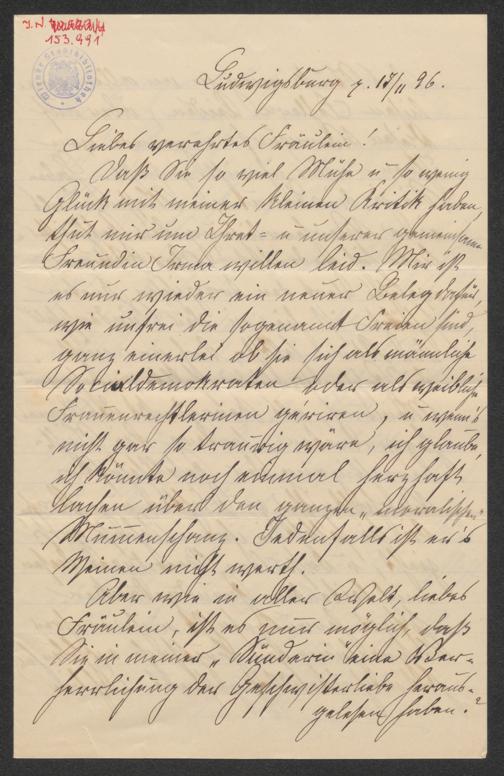 J. N.
153.991
Wiener Stadtbibliothek
Ludwigsburg p. 17/11 96.
Liebes verehrtes Fräulein!
Daß Sie so viel Mühe u so wenig
Glück mit meiner kleinen Kritik haben,
thut mir um Ihret= u unserer gemeinsamen
Freundin Irma willen leid. Mir ist
es nur wieder ein neuer Beleg dafür,
wie unfrei die sogenannt Freien sind,
ganz einerlei ob sie sich als männliche
Socialdemokraten oder als weibliche
Frauenrechtlerinen geriren, u wenn's
nicht gar so traurig wäre, ich glaube,
ich könnte noch einmal herzhaft
lachen über den ganzen „moralischen"
Mummenschanz. Jedenfalls ist er's
Weinen nicht werth.
Aber wie in aller Welt, liebes
Fräulein, ist es nur möglich, daß
Sie in meiner „Sünderin" eine Ver=
herrlichung der Geschwisterliebe heraus=
gelesen haben?